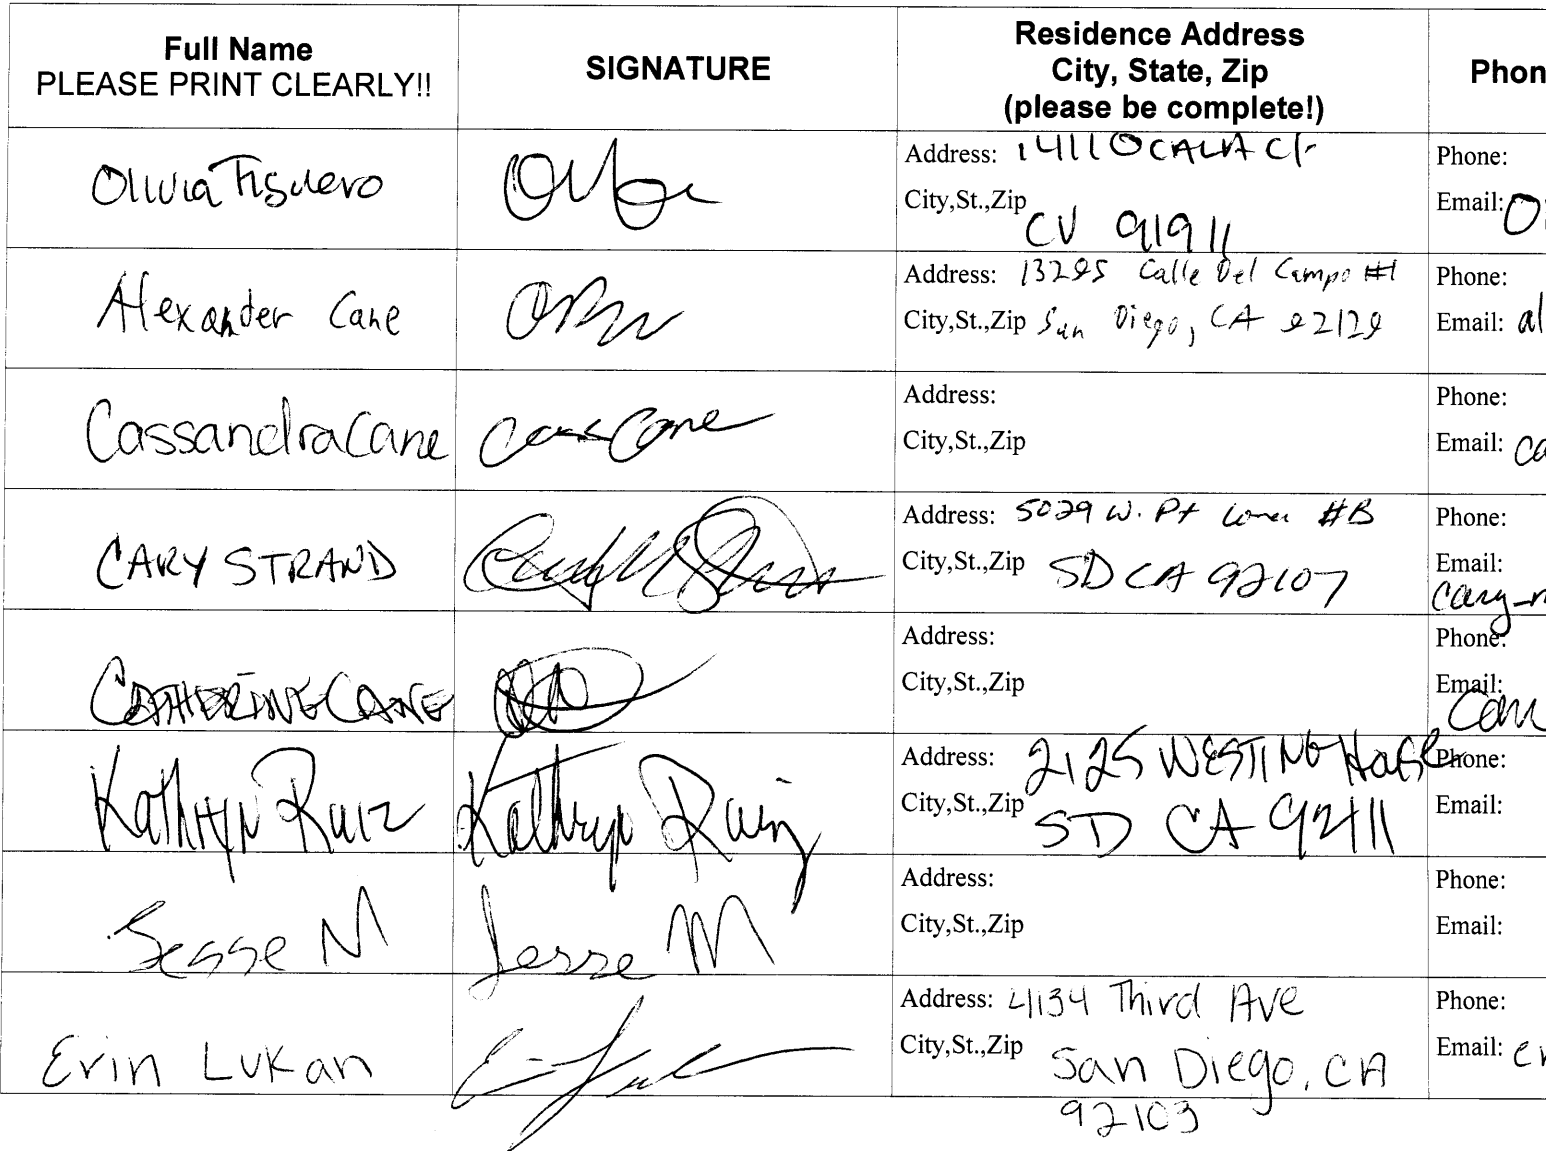 Full Name
PLEASE PRINT CLEARLY!!
SIGNATURE
Residence Address
City, State, Zip
(please be complete!)
Phon
Olivia Figuero
Address: 1411 OCALA Ct
City,St.,Zip
CV 91911
Phone:
Email:
Alexander Cane
Address: 13295 Calle Del Campo #1
City,St.,Zip San Diego, CA 92129
Phone:
Email: al
Cassandra Cane
Cass Cane
Address:
City,St.,Zip
Phone:
Email: ca
CARY STRAND
Address: 5029 W. Pt Loma #B
City,St.,Zip SD CA 92107
Phone:
Email:
cary-
CATHERINE CANE
Address:
City,St.,Zip
Phone:
Email:
Kathryn Ruiz
Kathryn Ruiz
Address: 2125 WESTINGHOUSE
City,St.,Zip SD CA 92111
Phone:
Email:
Jesse M
Jesse M
Address:
City,St.,Zip
Phone:
Email:
Erin Lukan
Address: 4134 Third Ave
City,St.,Zip San Diego, CA
92103
Phone:
Email: er